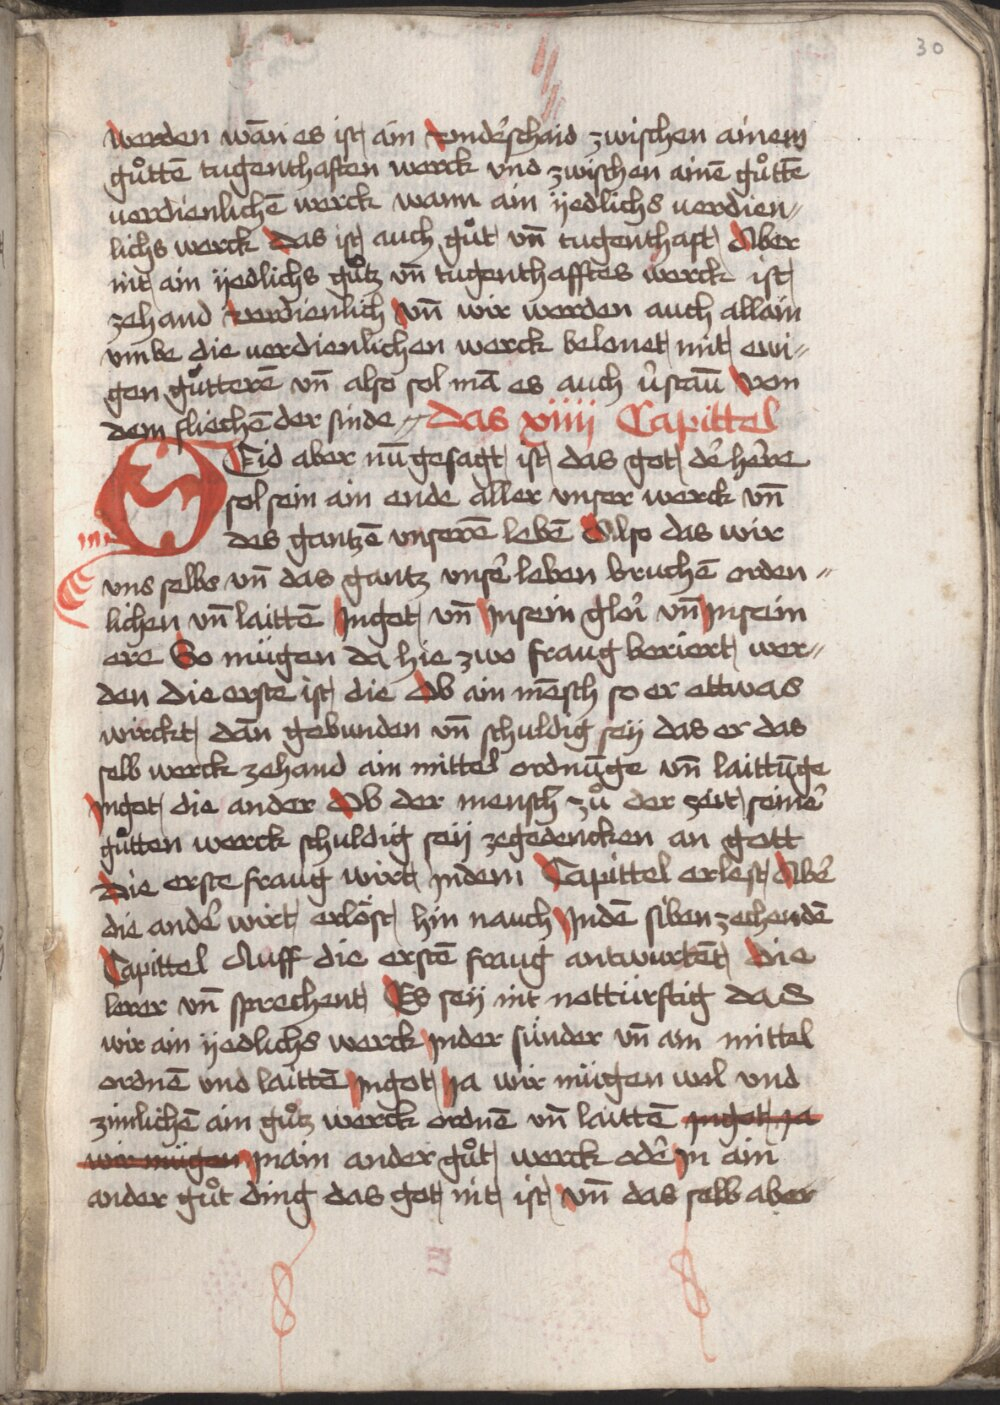 30
werden wān es ist ain vnde᷑schaid zwischen ainem
gůttē tugenthaften werck vnd zwischen ainē gůttē
uerdienlichē werck wann ain ÿedlichs uerdien〃
lichs werck Das ist auch gůt vn̄ tugenthaft Aber
nit ain ÿedlichs gůtz vn̄ tugenthafftes werck ist
zehand verdienlich Vn̄ wir werden auch allain
vmbe die uerdienlichen werck belonet mit ewi〃
gen gůtterē vn̄ also sol mā es auch v᷑staū Von
dem fliechē der sinde Das xiiii Capittel
SEid aber nū gesagt ist das got de᷑ he᷑re
sol sein ain ende aller vnser werck vn̄
des gantzē vnserē lebē Also das wir
vns selbs vn̄ das gantz vnse᷑ leben bruchē orden〃
lichen vn̄ laittē Jngot vn̄ Jnsein glori vn̄ Jnsein
ere So mügen da hie zwo fraug beriert wer〃
den Die erste ist die Ob ain mēsch so er ettwas
wirckt dān gebunden vn̄ schuldig seÿ das er das
selb werck zehand ain mittel ordnūge vn̄ laittūge
Jngot die ander Ob der mensch zů der zeit seine᷑
gůtten werck schuldig seÿ zegedencken an gott
Die erste fraug wirt Jndem Capittel erlest Abe᷑
die ande᷑ wirt erlöst hin nauch Jndē sibenzechendē
Capittel Auff die erstē fraug antwurtēt Die
lerer vn̄ sprechent Es seÿ nit nottürftig das
wir ain ÿedlichs werck Jnder sünder vn̄ ain mittel
ordnē vnd laittē Jngot Ja wir mügen wol vnd
zimlichē ain gůtz werck ordnē vn̄ laittē Jngot Ja
wir mügen Jnain ander gůt werck ode᷑ Jn ain
ander gůt ding das got nit ist Vn̄ das selb aber